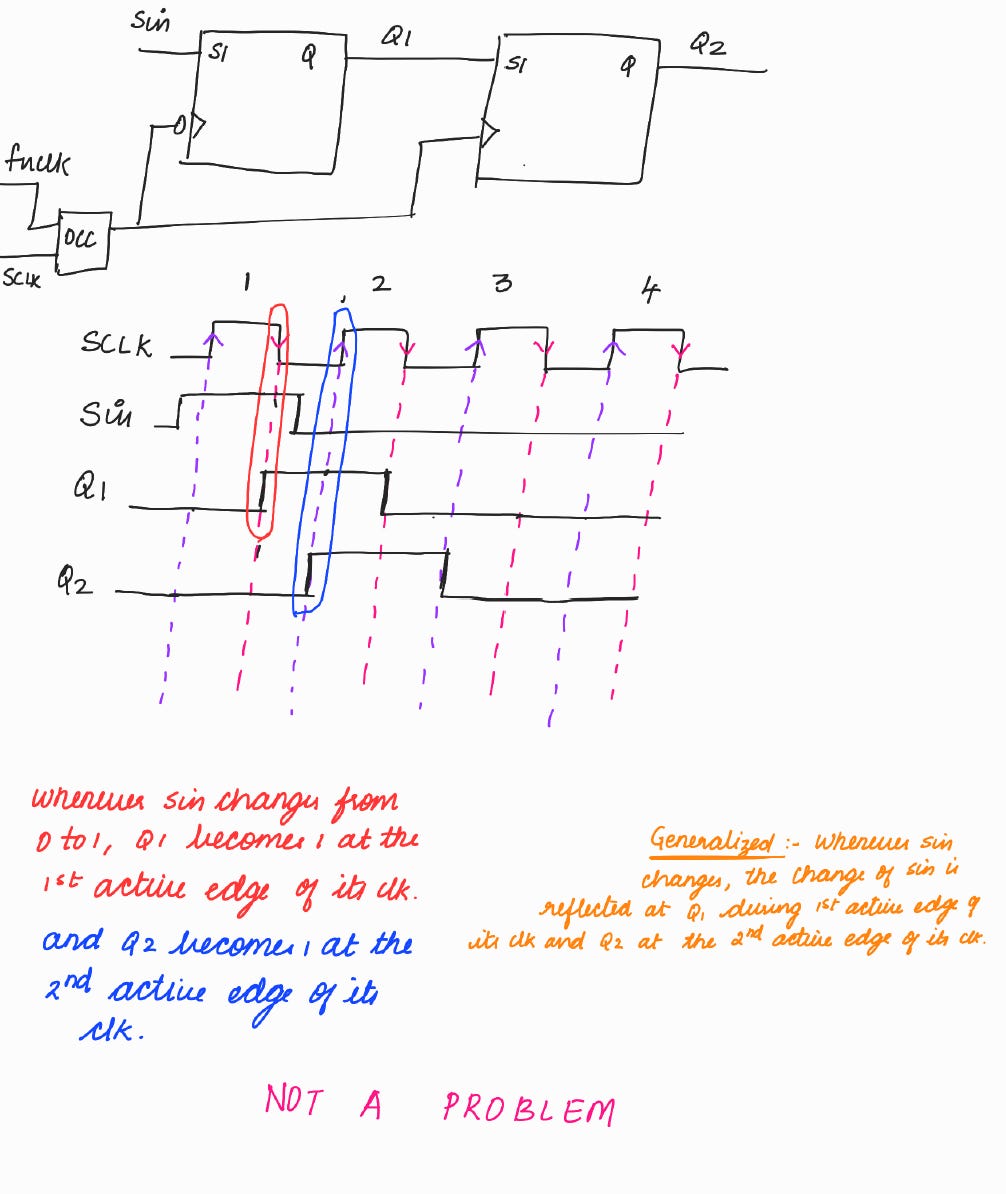 Sin
SI Q Q1 SI Q Q2
fnclk
OCC
SCLK
1 2 3 4
SCLK
Sin
Q1
Q2
whenever sin changes from
0 to 1, Q1 becomes 1 at the
1st active edge of its clk.
and Q2 becomes 1 at the
2nd active edge of its
clk.
Generalized :- whenever sin
changes, the change of sin is
reflected at Q1 during 1st active edge of
its clk and Q2 at the 2nd active edge of its clk.
NOT A PROBLEM